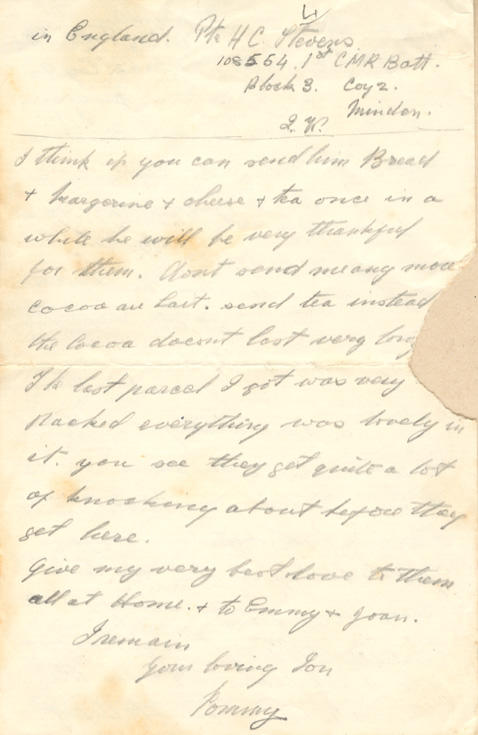 4
in England. Pte H C. Stevens
108554. 1st CMR Batt.
Block 3. Coy 2.
Minden.
I think if you can send him Bread
+ Margerine + cheese + tea once in a
while he will be very thankful
for them. dont send me any more
cocoa au Lait. send tea instead
the cocoa doesnt last very long
The last parcel I got was very
Packed everything was lovely in
it. you see they get quite a lot
of knocking about before they
get here.
Give my very best love to them
all at Home. + to Emmy + Joan.
I remain
Your loving Son
Tommy